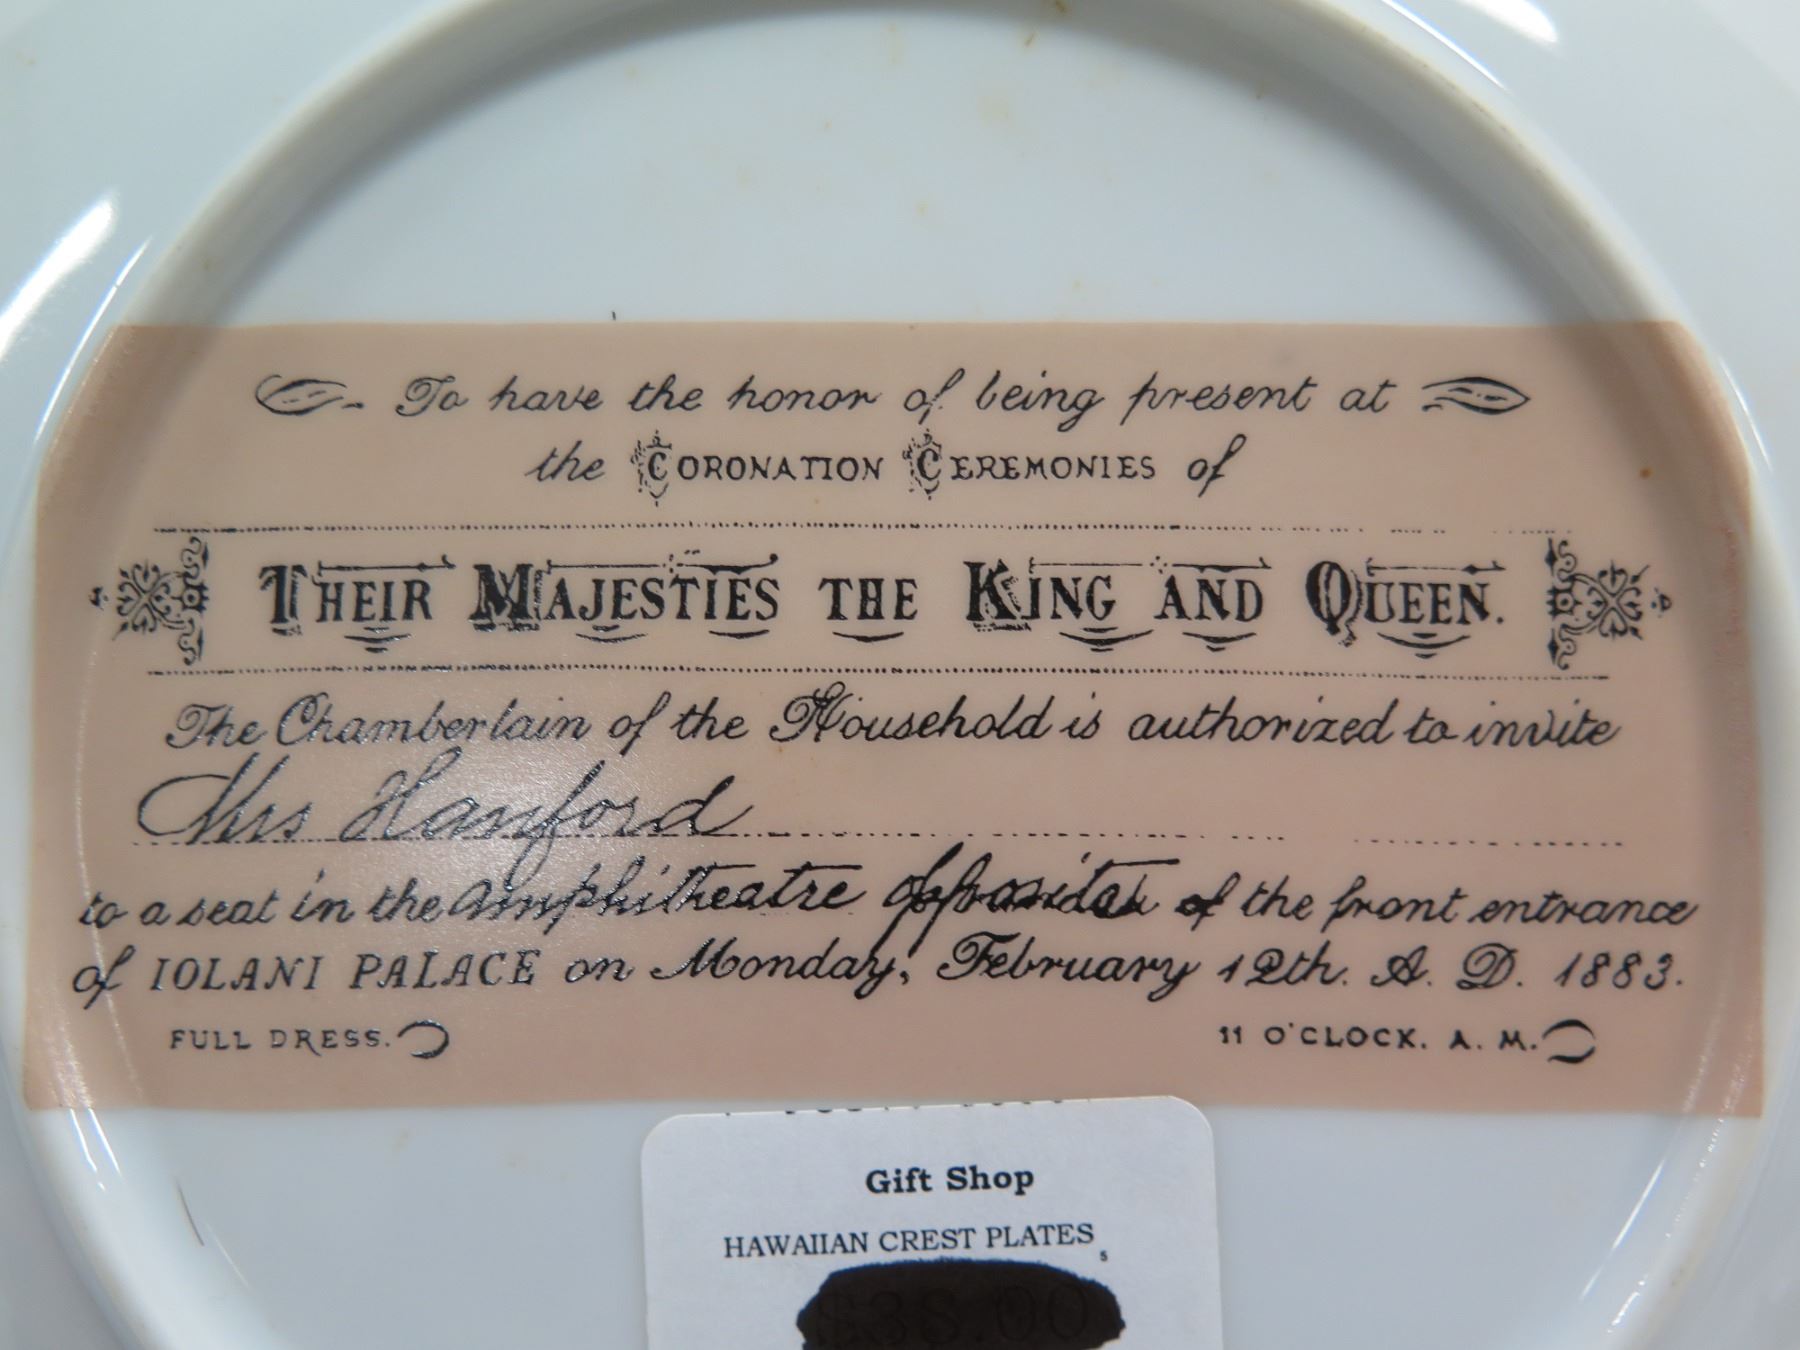 To have the honor of being present at
the CORONATION CEREMONIES of
THEIR MAJESTIES THE KING AND QUEEN.
The Chamberlain of the Household is authorized to invite
Mrs Hanford
to a seat in the amphitheatre opposite of the front entrance
of IOLANI PALACE on Monday, February 12th. A. D. 1883.
FULL DRESS.
11 O'CLOCK. A. M.
Gift Shop
HAWAIIAN CREST PLATES
s